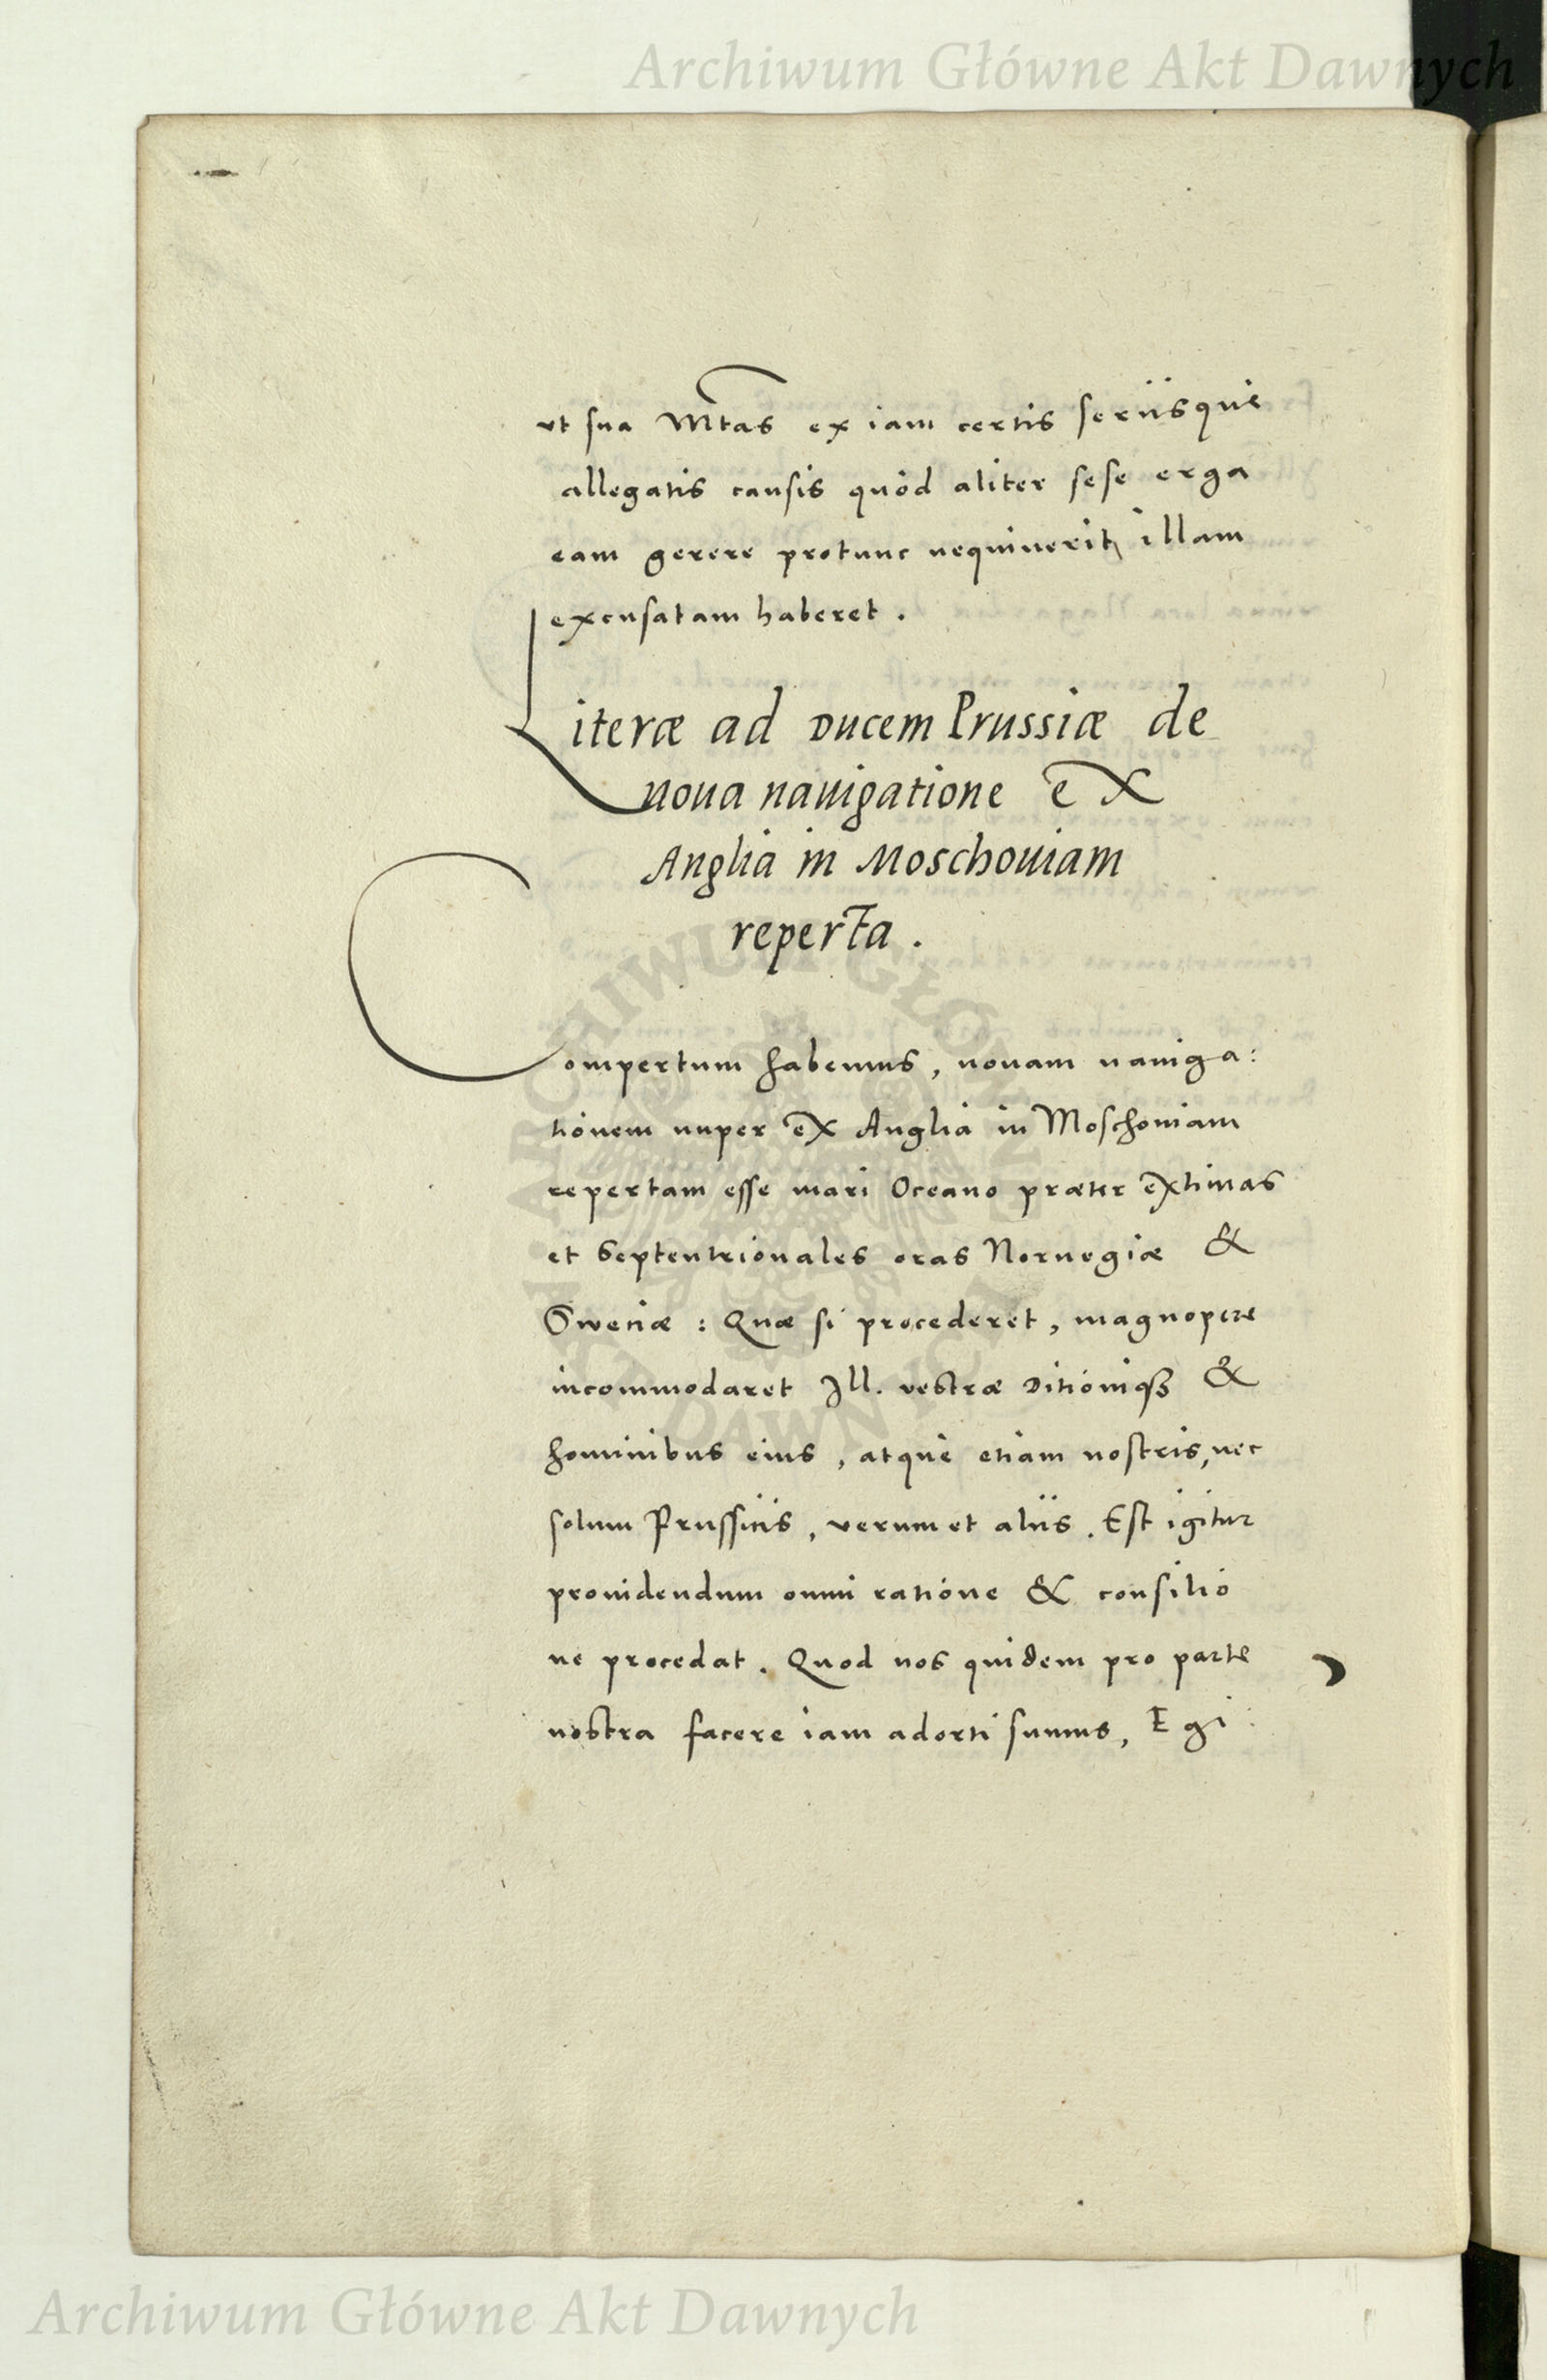 Archiwum Główne Akt Dawnych
vt sua Mtas ex iam certis seriisque
allegatis causis quòd aliter sese erga
eam gerere protunc nequiuerit, illam
excusatam haberet.
Literæ ad Ducem Prussiæ de
noua nauigatione ex
Anglia in Moschouiam
reperta.
Compertum habemus, nouam nauiga:
tionem nuper ex Anglia in Moschouiam
repertam esse mari Oceano præter extimas
et Septentrionales oras Noruegiæ &
Sweciæ: Quæ si procederet, magnopere
incommodaret Ill. vestræ Ditioniqȝ &
hominibus eius, atque etiam nostris, nec
solum Prussicis, verum et aliis. Est igitur
prouidendum omni ratione & consilio
ne procedat. Quod nos quidem pro parte
nostra facere iam adorti sumus, Egi
ARCHIWUM GŁÓWNE AKT DAWNYCH
Archiwum Główne Akt Dawnych